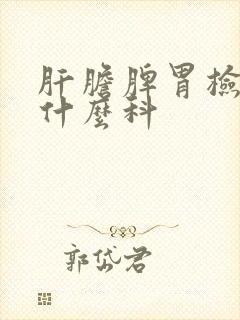 肝膽脾胃檢
什麼科
郭岱君